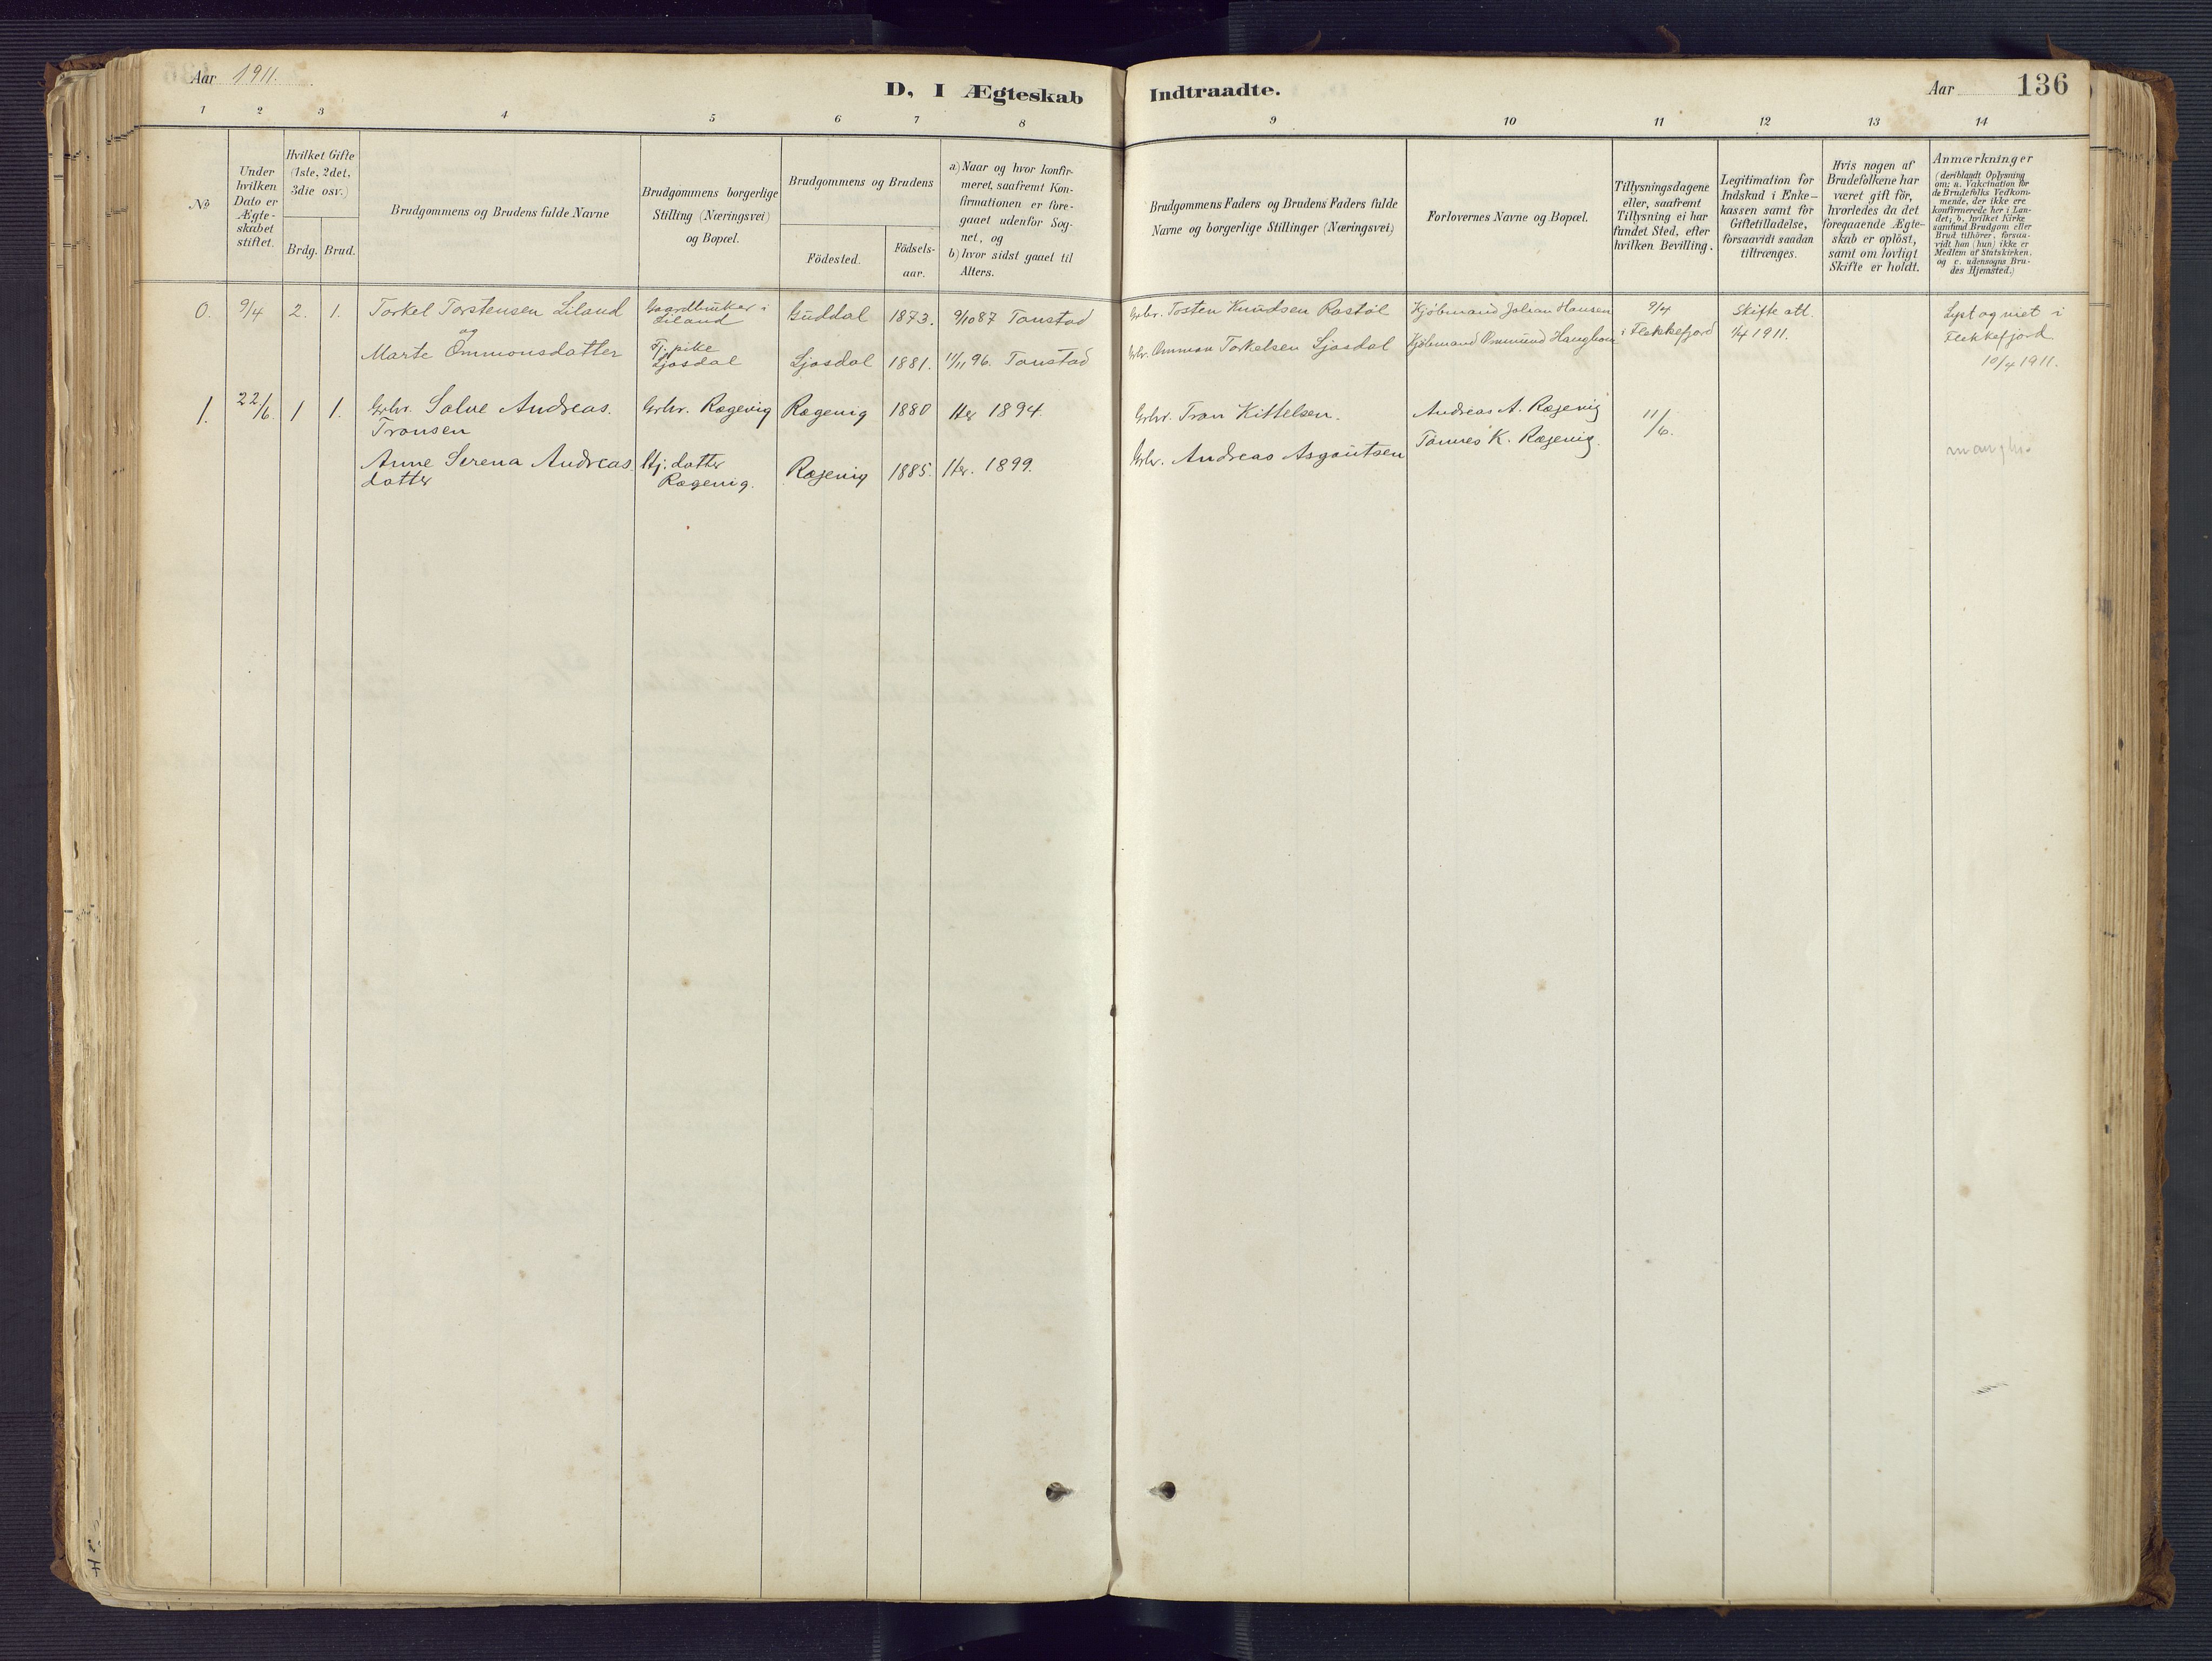 Aar 1911.
D, I Ægteskab Indtraadte.
Aar 136
1 2 3 4 5 6 7 8 9 10 11 12 13 14
No
Under hvilken Dato er Ægte-skabet stiftet.
Hvilket Gifte (1ste, 2det, 3die osv.)
Brdg. Brud.
Brudgommens og Brudens fulde Navne
Brudgommens borgerlige Stilling (Næringsvei) og Bopæl.
Brudgommens og Brudens
Födested.
Födsels-aar.
a) Naar og hvor konfir-meret, saafremt Kon-firmationen er fore-gaaet udenfor Sog-net, og
b) hvor sidst gaaet til Alters.
Brudgommens Faders og Brudens Faders fulde Navne og borgerlige Stillinger (Næringsvei)
Forlovernes Navne og Bopæl.
Tillysningsdagene eller, saafremt Tillysning ei har fundet Sted, efter hvilken Bevilling.
Legitimation for Indskud i Enke-kassen samt for Giftetilladelse, forsaavidt saadan tiltrænges.
Hvis nogen af Brudefolkene har været gift för, hvorledes da det foregaaende Ægte-skab er oplöst, samt om lovligt Skifte er holdt.
Anmærkninger (deriblandt Oplysning om: a. Vakcination for de Brudefolks Vedkom-mende, der ikke ere konfirmerede her i Lan-det; b. hvilket Kirke samfund Brudgom eller Brud tilhörer, forsaa-vidt han (hun) ikke er Medlem af Statskirken, og c. udensogns Bru-des Hjemsted.)
0. 9/4 2. 1. Torkel Torstensen Liland
og
Marte Ommonsdatter
Gaardbruker i Liland
Tj. pike Ljosdal
Guddal 1873. 9/10 87 Tonstad
Ljosdal 1881. 11/11 96. Tonstad
Grbr. Tosten Knudsen Rostøl
Grbr. Ommon Torkelsen Ljosdal
Kjöbmand Johan Hansen
Kjöbmand Ommund Haughom
9/4
i Flekkefjord
Skifte att. 1/4 1911.
Lyst og viet i
Flekkefjord
10/4 1911.
1. 22/6. 1 1. Grbr. Salve Andreas.
Tronsen
Anne Serena Andreas
datter
Grbr. Rægevig
Hj. datter
Rægevig.
Rægevig 1880 Her 1894.
Rægevig 1885. Her. 1899.
Grbr. Tron Kittelsen.
Grbr. Andreas Asgautsen
Andreas A. Rægevig
Tönnes K. Rægevig.
11/6.